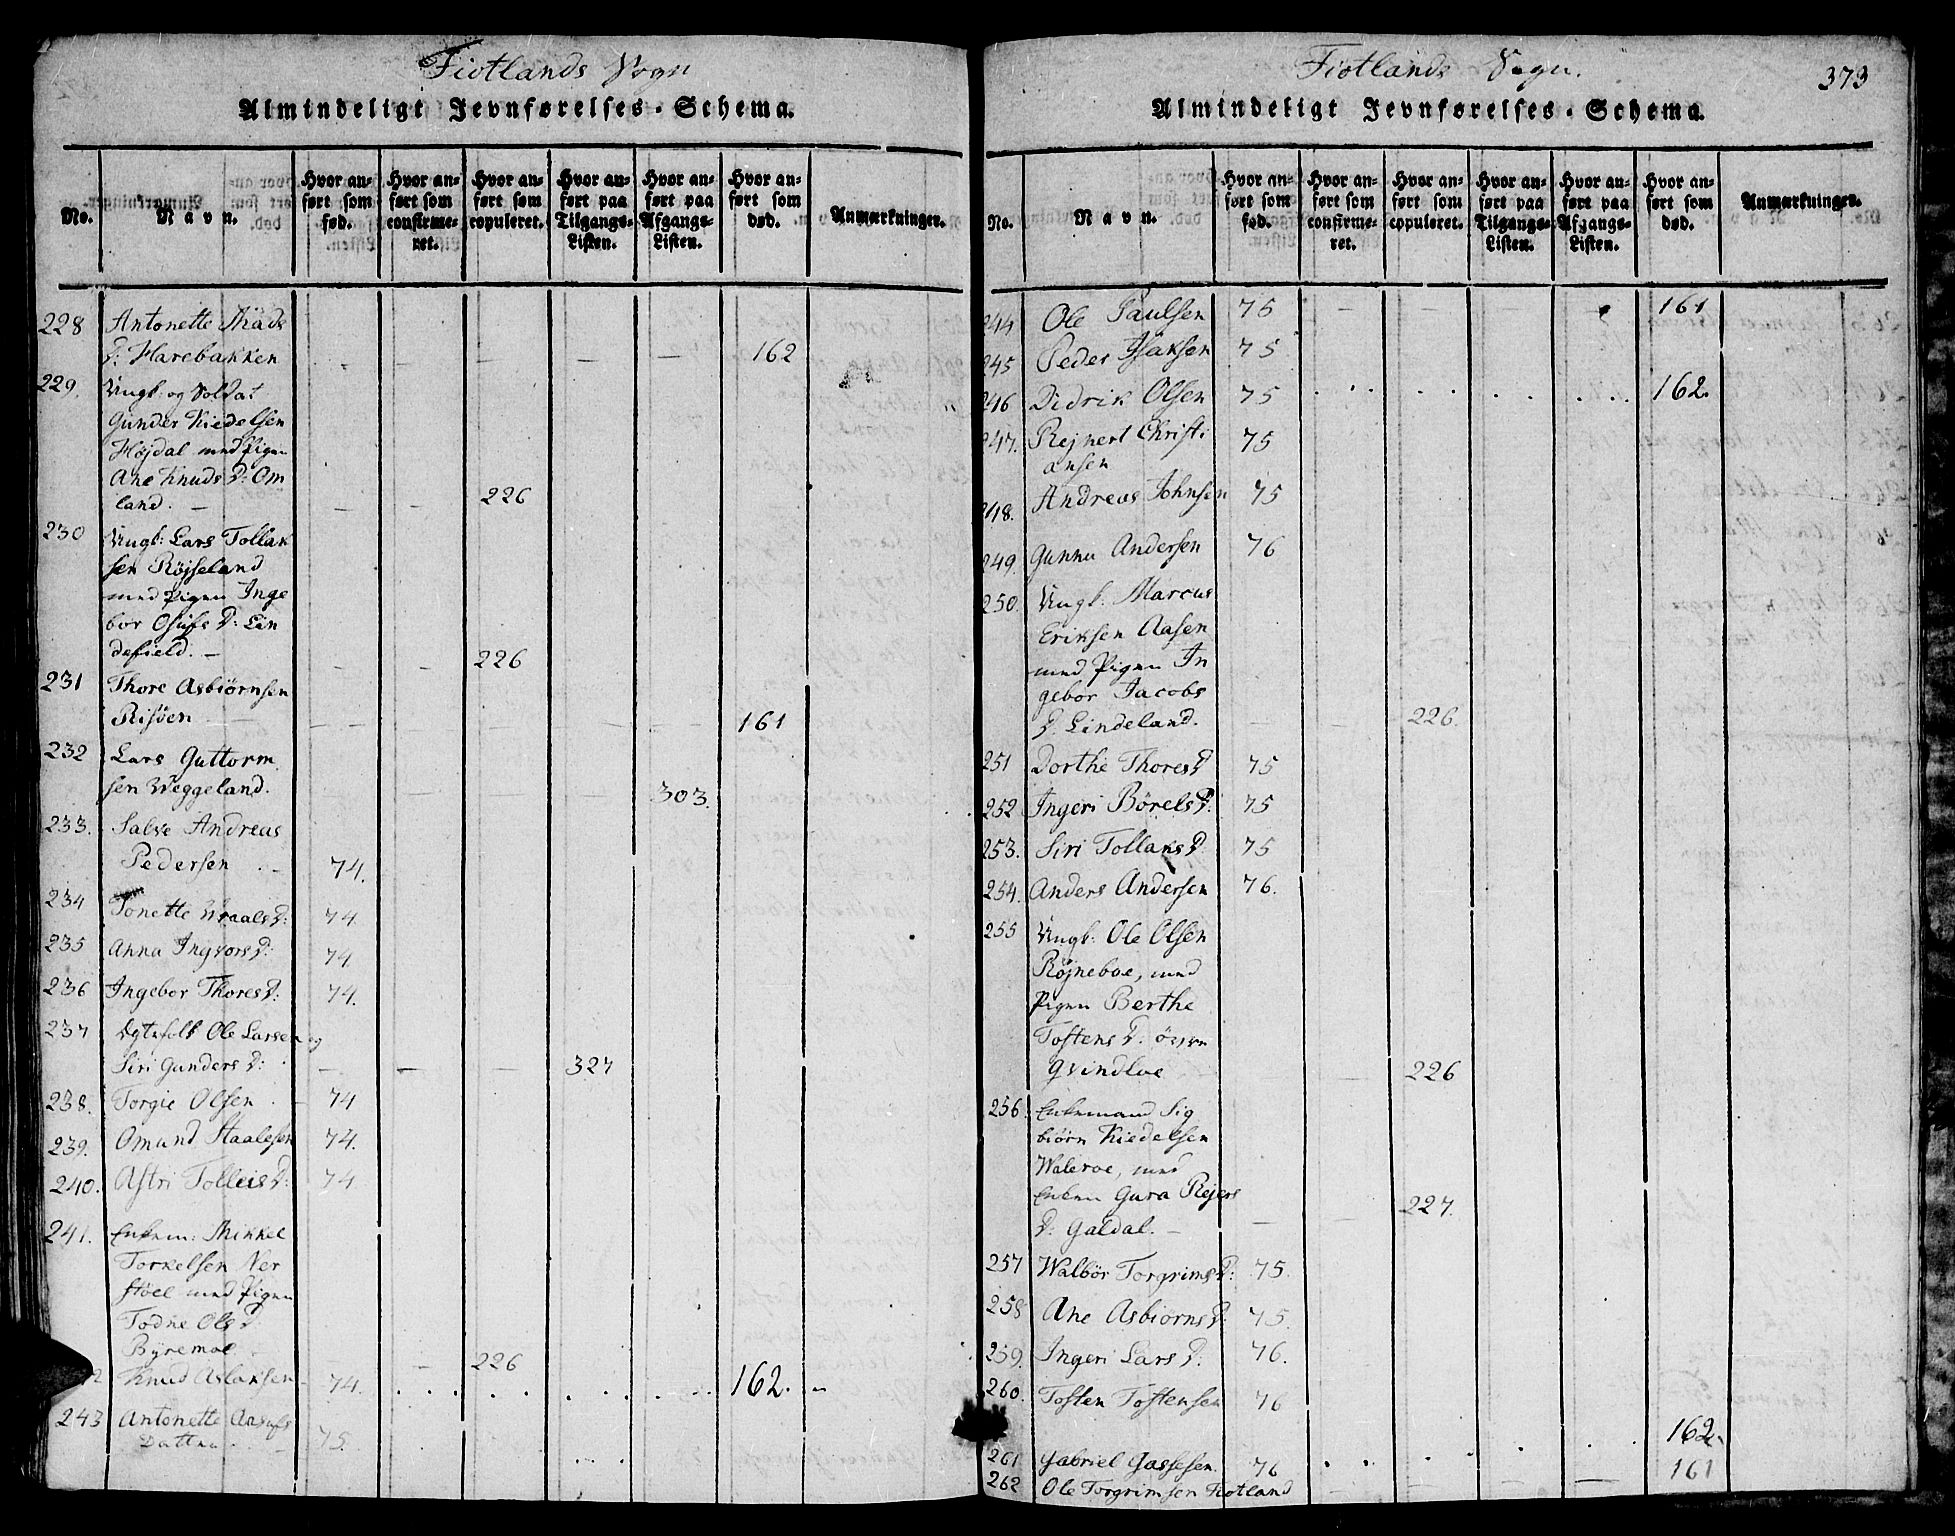 Fiotlands Sogn
Almindeligt Jevnførelses-Schema.
No.
Navn.
Hvor anført som fød.
Hvor anført som confirmeret.
Hvor anført som copuleret.
Hvor anført paa Tilgangs-Listen.
Hvor anført paa Afgangs-Listen.
Hvor anført som død.
Anmærkninger.
228 Antonette Mads
D: Harebakken — — — — — 162
229. Ungk: og Soldat
Gunder Kiedelsen
Højdal med Pigen
Ane Knuds D: Om
land. — — — 226
230 Ungk: Lars Tollak
sen Røjseland
med Pigen Inge
bor Osufs D: Lin
defield. — — — 226
231 Thore Asbiørnsen
Risøen — — — — — 161
232 Lars Guttorm
sen Weggeland. — — — — 303.
233. Salve Andreas
Pedersen 74.
234 Tonette Wraals D: 74.
235 Anna Ingvors D: 74
236 Ingebor Thores D: 74.
237 Ægtefolk Ole Larsen og
Siri Gunders D: — — — 327
238. Torgie Olsen 74
239. Omund Staalesen 74.
240. Astri Tolleis D: 74
241. Enkem: Mikkel
Torkelsen Ner
støel med Pigen
Todne Ols D
Byremoe — — 226
Knud Aslaksen 74. 162.
243 Antonette Aasufs
Datter 75.
Fiotlands Sogn.
373
Almindeligt Jevnførelses-Schema.
No.
Navn.
Hvor anført som fød.
Hvor anført som confirmeret.
Hvor anført som copuleret.
Hvor anført paa Tilgangs-Listen.
Hvor anført paa Afgangs-Listen.
Hvor anført som død.
Anmærkninger.
244 Ole Paulsen 75 — — — — 161
245 Peder Isaksen 75
246 Didrik Olsen 75 162.
247. Rejnert Christi
ansen 75
248. Andreas Johnsen 75
249. Gunnu Andersen 76
250. Ungk: Marcus
Eriksen Aasen
med Pigen In
gebor Jacobs
D. Lindeland. — — 226.
251 Dorthe Thores D 75
252 Ingeri Børels D: 75
253. Siri Tollaks D 75
254. Anders Andersen 76.
255 Ungk: Ole Olsen
Røjneboe, med
Pigen Berthe
Tostens D: øvre
Qvindloe — 226
256. Enkemand Sig
biørn Kiedelsen
Waleroe, med
Enken Gura Rejers
D: Galdal. — — — 227.
257 Walbør Torgrims D: 75.
258 Ane Asbiørns D: 75.
259. Ingeri Lars D: 76.
260. Tosten Tostensen 76
162.
261 Gabriel Gassesen. 76 161
262 Ole Torgrimsen Fiotland